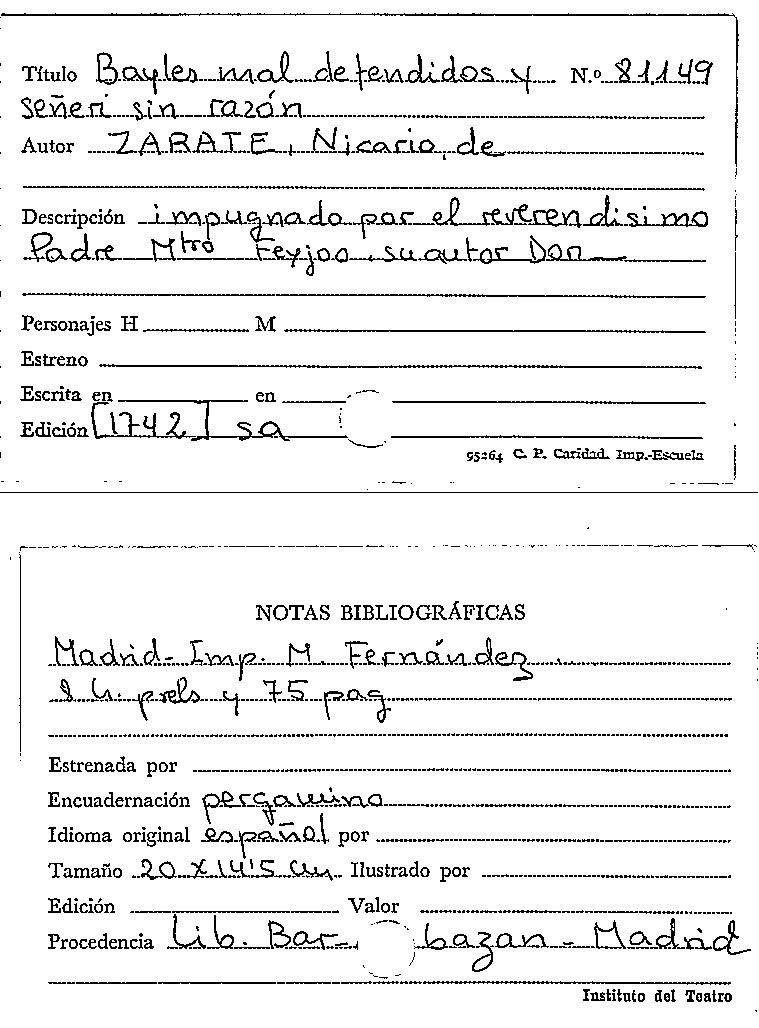 Título Bayles mal defendidos y N.º 81.149
señeri sin razón
Autor ZARATE, Nicario, de
Descripción impugnado por el reverendisimo
Padre Mtro Feyjoo. su autor Don
Personajes H M
Estreno
Escrita en en
Edición [1742] sa
95264 C. P. Caridad. Imp.-Escuela
NOTAS BIBLIOGRÁFICAS
Madrid- Imp. M. Fernández
8 h. prels y 75 pag
Estrenada por
Encuadernación pergamino
Idioma original español por
Tamaño 20 x 14'5 cm Ilustrado por
Edición Valor
Procedencia Lib. Bar- bazan - Madrid
Instituto del Teatro